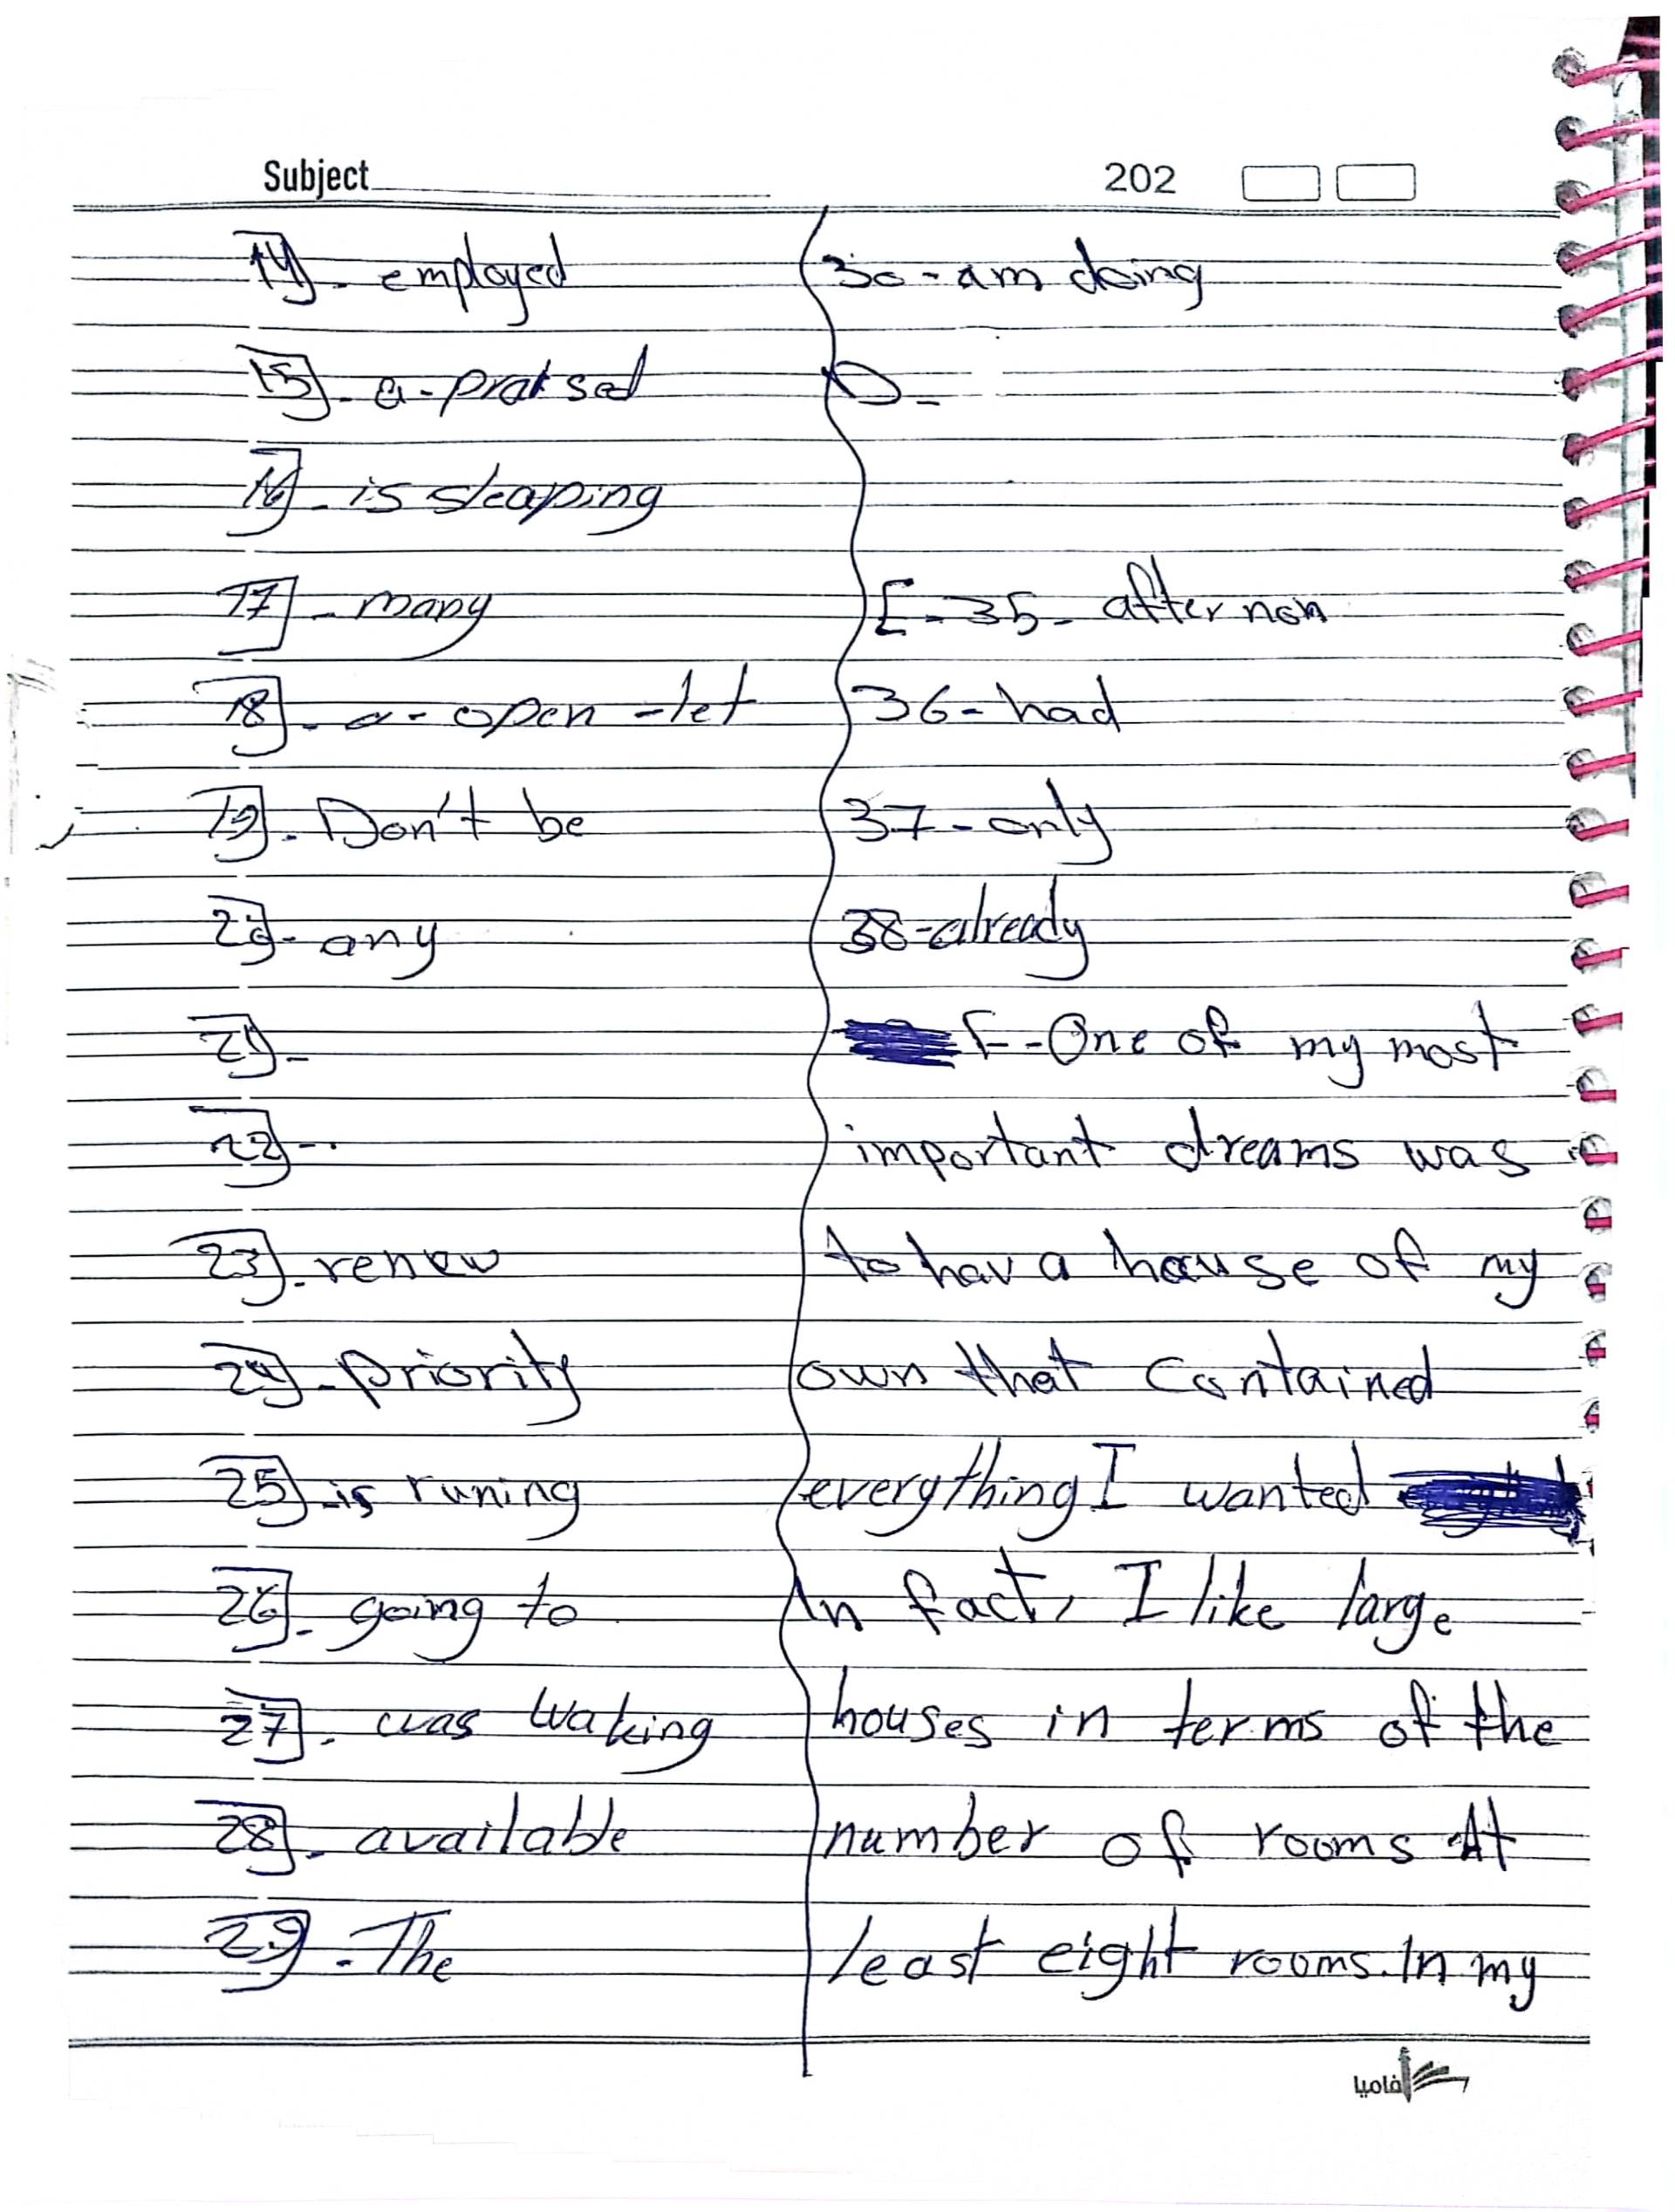 Subject 202
14- employed
15- a- praised
16- is sleaping
17- many
18- a- open - let
19- Don't be
20- any
21-
22-
23- renew
24- priority
25- is runing
26- going to
27- was waking
28- available
29- The
30- am doing
D-
E- 35- after non
36- had
37- only
38- already
F- One of my most
important dreams was
to hav a house of my
own that contained
everything I wanted
In fact, I like large
houses in terms of the
number of rooms At
least eight rooms. In my
فاميا